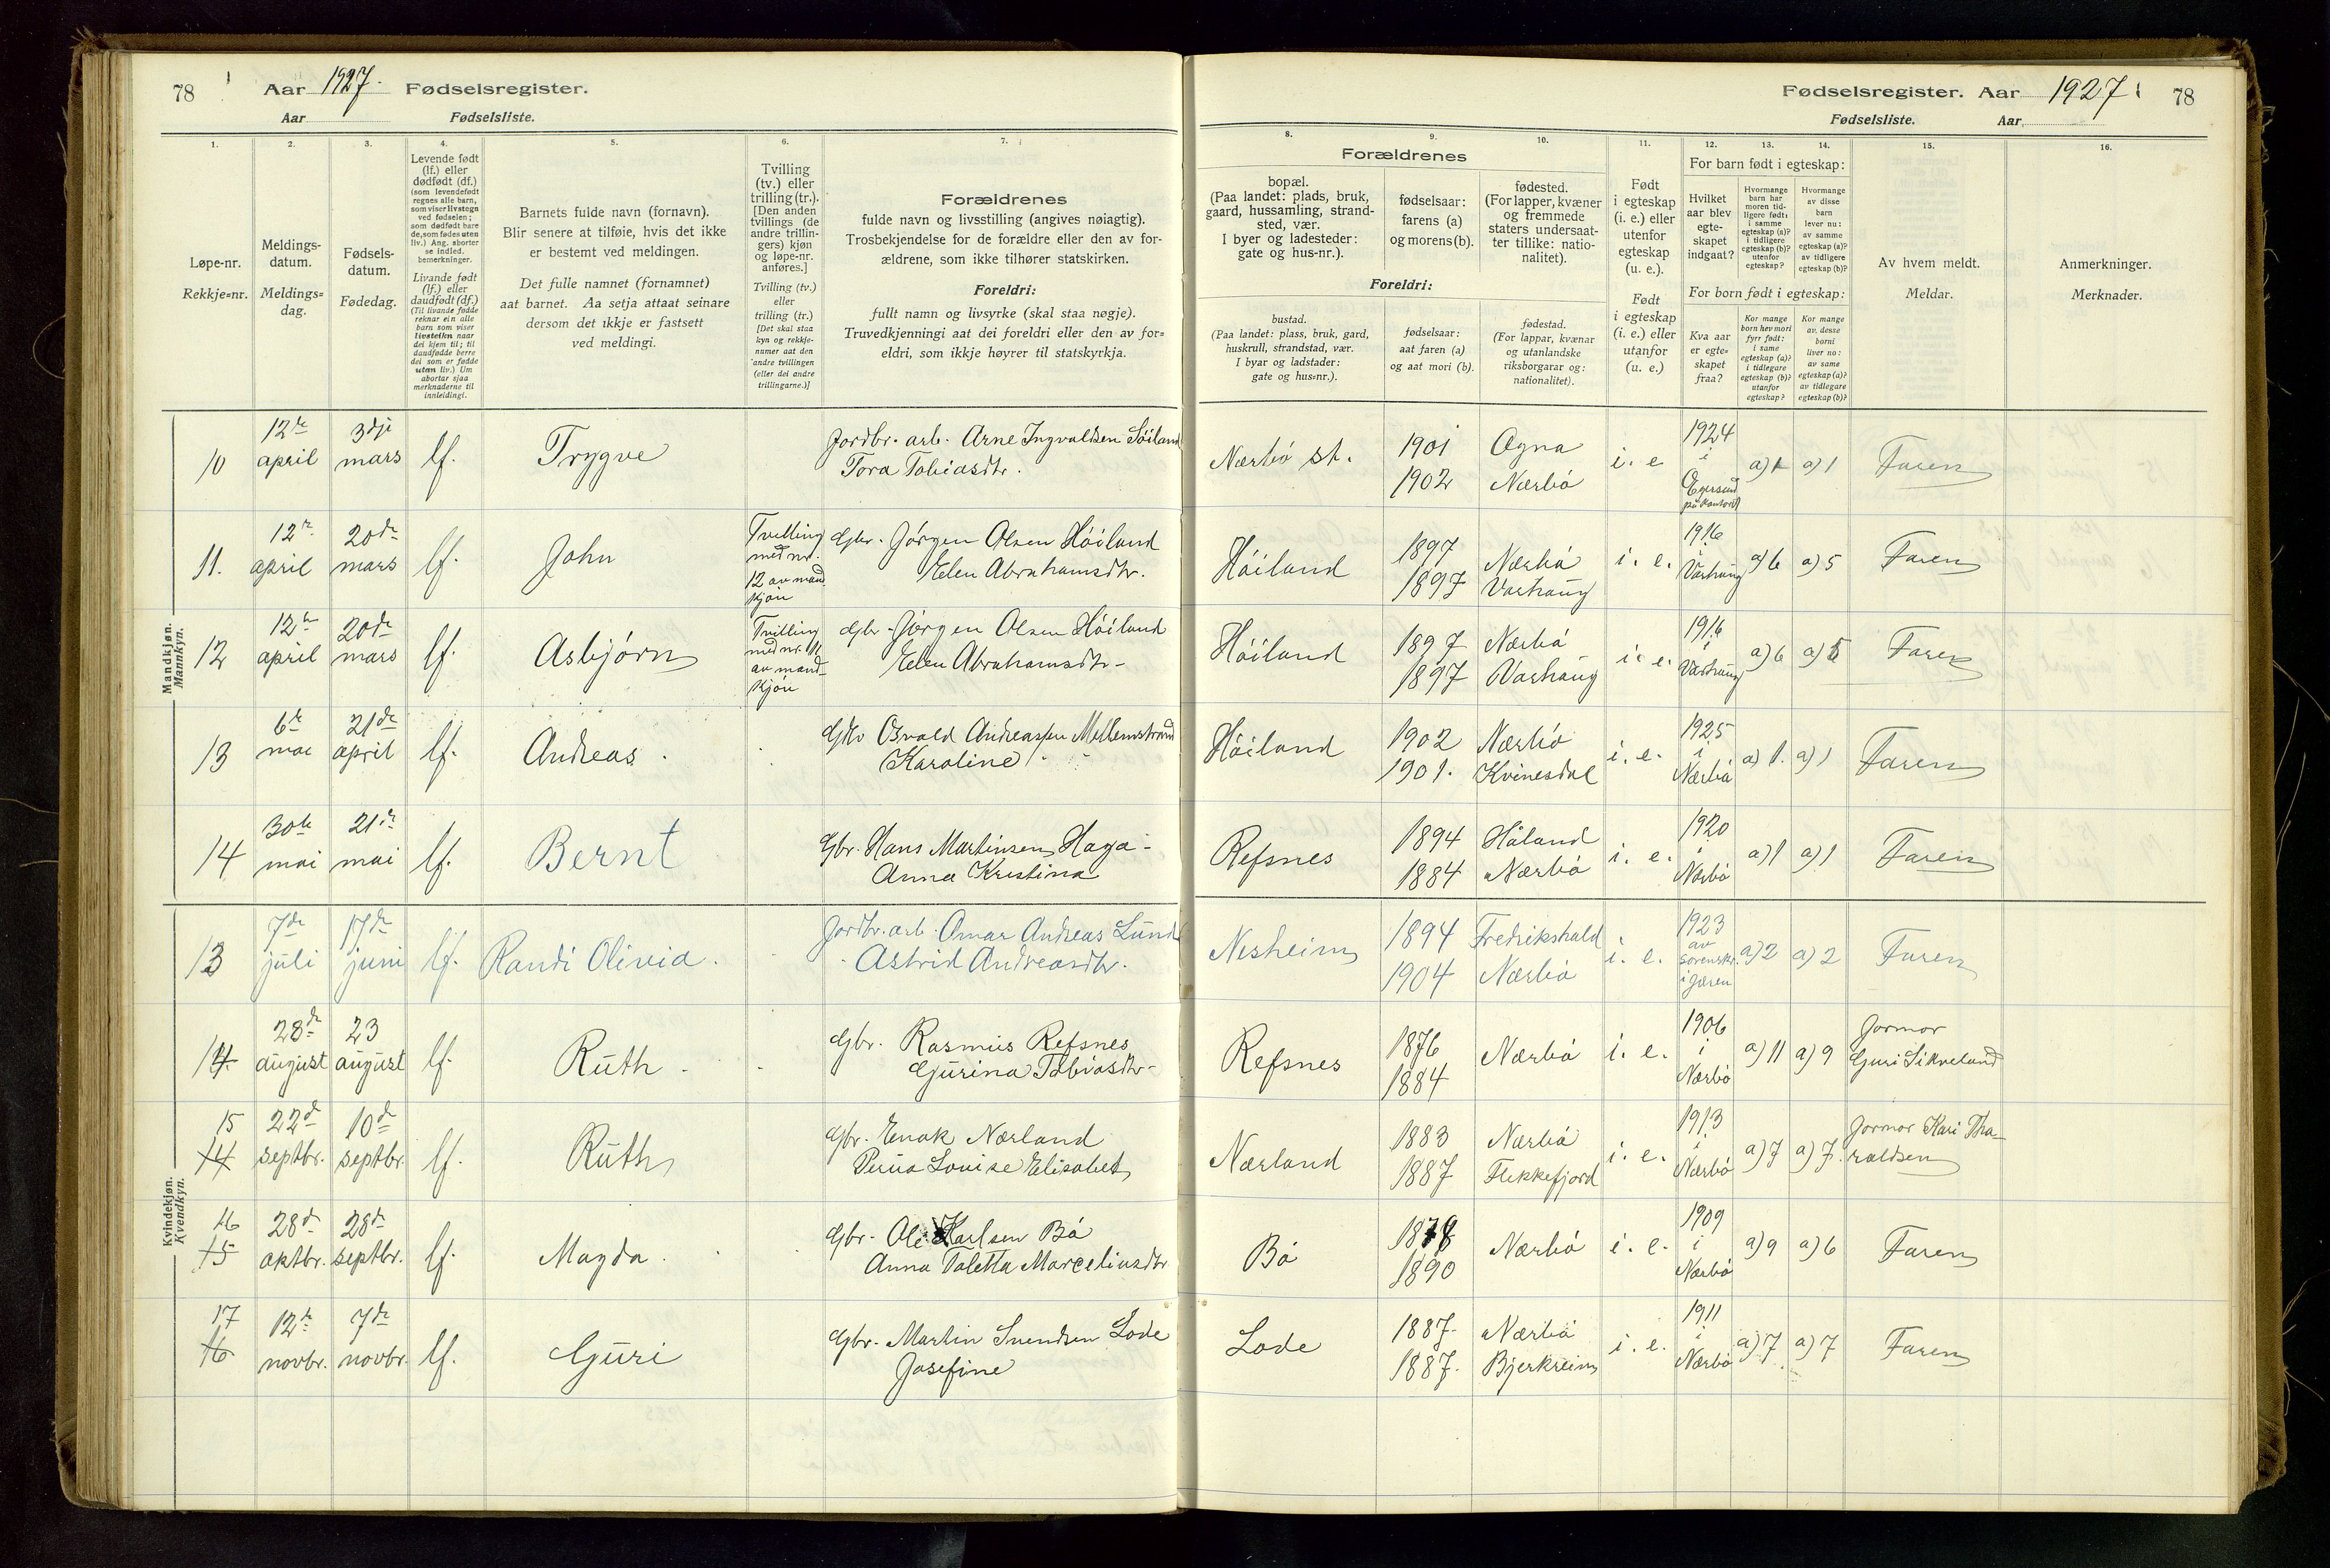 78
Aar 1927.
Fødselsregister.
Aar
Fødselsliste.
1.
Løpe-nr.
Rekkje=nr.
2.
Meldings-
datum.
Meldings=
dag.
3.
Fødsels-
datum.
Fødedag.
4.
Levende født
(lf.) eller
dødfødt (df.)
(som levendefødt
regnes alle barn,
som viser livstegn
ved fødselen;
som dødfødt bare
de, som fødes uten
liv.) Ang. aborter
se indled.
bemerkninger.
Livande født
(lf.) eller
daudfødt (df.)
(Til livande fødde
reknar ein alle
barn som viser
livsteikn naar
dei kjem til; til
daudfødde berre
dei som er fødde
utan liv.) Um
abortar sjaa
merknaderne til
innleidingi.
5.
Barnets fulde navn (fornavn).
Blir senere at tilføie, hvis det ikke
er bestemt ved meldingen.
Det fulle namnet (fornamnet)
aat barnet. Aa setja attaat seinare
dersom det ikkje er fastsett
ved meldingi.
6.
Tvilling
(tv.) eller
trilling (tr.).
[Den anden
tvillings (de
andre trillin-
gers) kjøn
og løpe-nr.
anføres.]
Tvilling (tv.)
eller
trilling (tr.)
[Det skal staa
kyn og rekkje-
numer aat den
andre tvillingen
(eller dei andre
trillingarne.)]
7.
Forældrenes
fulde navn og livsstilling (angives nøiagtig).
Trosbekjendelse for de forældre eller den av for-
ældrene, som ikke tilhører statskirken.
Foreldri:
fullt namn og livsyrke (skal staa nøgje).
Truvedkjenningi aat dei foreldri eller den av for=
eldri, som ikkje høyrer til statskyrkja.
Mandkjøn.
Mannkyn.
10
12te april
3dje mars
lf.
Trygve
Jordbr. arb. Arne Ingvaldsen Söiland
Tora Tobiasdtr.
11.
12te april
20de mars
lf.
John
Tvilling
med nr.
12 av mand
kjön
Gbr. Jörgen Olsen Höiland
Elen Abrahamsdtr.
12
12te april
20de mars
lf.
Asbjörn
Tvilling
med nr. 11
av mand-
kjön
Gbr. Jörgen Olsen Höiland
Elen Abrahamsdtr-
13
6te mai
21de april
lf.
Andreas.
Gbr Osvald Andreassen Mellemstrand
Karoline
14
30te mai
21de mai
lf.
Bernt
Gbr. Hans Martinsen Haga-
Anna Kristina
Kvindekjøn.
Kvendkyn.
13
7de juli
17de juni
lf.
Randi Olivia.
Jordbr. arb. Omar Andreas Lunde
Astrid Andreasdtr.
14
28de august
23 august
lf.
Ruth
Gbr. Rasmus Refsnes
Gurina Tobiasdtr-
15
14
22de septbr.
10de septbr.
lf.
Ruth
Gbr. Enok Nærland
Louise Elisabet
16
15
28de oktbr.
28de septbr.
lf.
Magda.
Gbr. Ole Karlsen Bö
Anna Taletta Marceliusdtr
17
16
12te novbr.
7de novbr.
lf.
Guri
Gbr. Martin Svendsen Lode
Josefine
Fødselsregister. Aar 1927
78
Fødselsliste.
Aar
Forældrenes
8.
bopæl.
(Paa landet: plads, bruk,
gaard, hussamling, strand-
sted, vær.
I byer og ladesteder:
gate og hus-nr.).
Foreldri:
bustad.
(Paa landet: plass, bruk, gard,
huskrull, strandstad, vær.
I byar og ladstader:
gate og hus=nr.).
9.
fødselsaar:
farens (a)
og morens (b).
fødselsaar:
aat faren (a)
og aat mori (b).
10.
fødested.
(For lapper, kvæner
og fremmede
staters undersaat-
ter tillike: natio-
nalitet).
fødestad.
(For lappar, kvænar
og utanlandske
riksborgarar og:
nationalitet).
11.
Født
i egteskap
(i. e.) eller
utenfor
egteskap
(u. e.).
Født
i egteskap
(i. e.) eller
utanfor
(u. e.)
For barn født i egteskap:
12.
Hvilket
aar blev
egte-
skapet
indgaat?
13.
Hvormange
barn har
moren tid-
ligere født:
i samme
egteskap (a)?
i tidligere
egteskap (b)?
utenfor
egteskap?
14.
Hvormange
av disse
barn
lever nu:
av samme
egteskap (a)?
av tidligere
egteskap (b)?
For born født i egteskap:
Kva aar
er egte=
skapet
fraa?
Kor mange
born hev mori
fyrr født:
i same
egteskap (a)?
i tidlegare
egteskap (b)?
utanfor
egteskap?
Kor mange
av desse
borni
liver no:
av same
egteskap (a)?
av tidlegare
egteskap (b)?
15.
Av hvem meldt.
Meldar.
16.
Anmerkninger.
Merknader.
Nærbö st.
1901
1902
Ogna
Nærbö
i. e
1924
i
Egersund
på kontoret
a) 1
a) 1
Faren
Höiland
1897
1897
Nærbö
Varhaug
i. e.
1916
i
Varhaug
a) 6
a) 5
Faren
Höiland
1897
1897
Nærbö
Varhaug
i. e.
1916
i
Varhaug
a) 6
a) 5
Faren
Höiland
1902
1901.
Nærbö
Kvinesdal
i. e.
1925
i
Nærbö
a) 1.
a) 1
Faren
Refsnes
1894
1884
Håland
Nærbö
i. e.
1920
i
Nærbö
a) 1
a) 1
Faren
Nesheim
1894
1904
Fredrikshald
Nærbö
i. e.
1923
av
sorenskr.
i Jæren
a) 2
a) 2
Faren
Refsnes
1876
1884
Nærbö
i. e.
1906
i
Nærbö
a) 11
a) 9
Jormor
Guri Sikveland
Nærland
1883
1887
Nærbö
Flekkefjord
i. e.
1913
i
Nærbö
a) 7
a) 7.
Jormor Kari Tha-
raldsen
Bö
1890
Nærbö
i. e.
1909
i
Nærbö
a) 9
a) 6
Faren
Lode
1887.
1887.
Nærbö
Bjerkreim
i. e.
1911
i
Nærbö
a) 7
a) 7
Faren